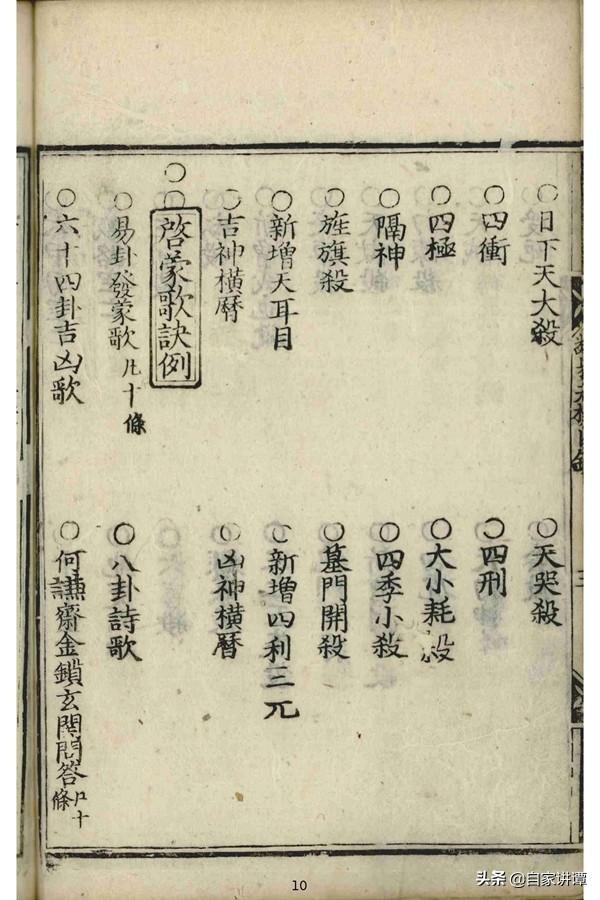 ○日下天大殺 ○天哭殺
○四衝 ○四刑
○四極 ○大小耗殺
○隔神 ○四季小殺
○旌旗殺 ○墓門開殺
○新增天耳目 ○新增四利三元
○吉神橫曆 ○凶神橫曆
○○啓蒙歌訣例
○易卦發蒙歌凡十條 ○八卦詩歌
○六十四卦吉凶歌 ○何謙齋金鎖玄關問答凡十條
10
头条 @自家讲谭